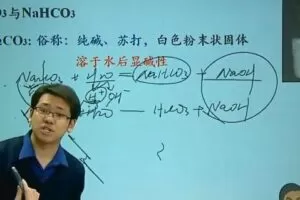 3与NaHCO3
CO3: 俗称: 纯碱、苏打，白色粉末状固体
溶于水后显碱性
Na2CO3 + H2O = NaHCO3 + NaOH
H+ OH-
+ H2O — H2CO3 + NaOH